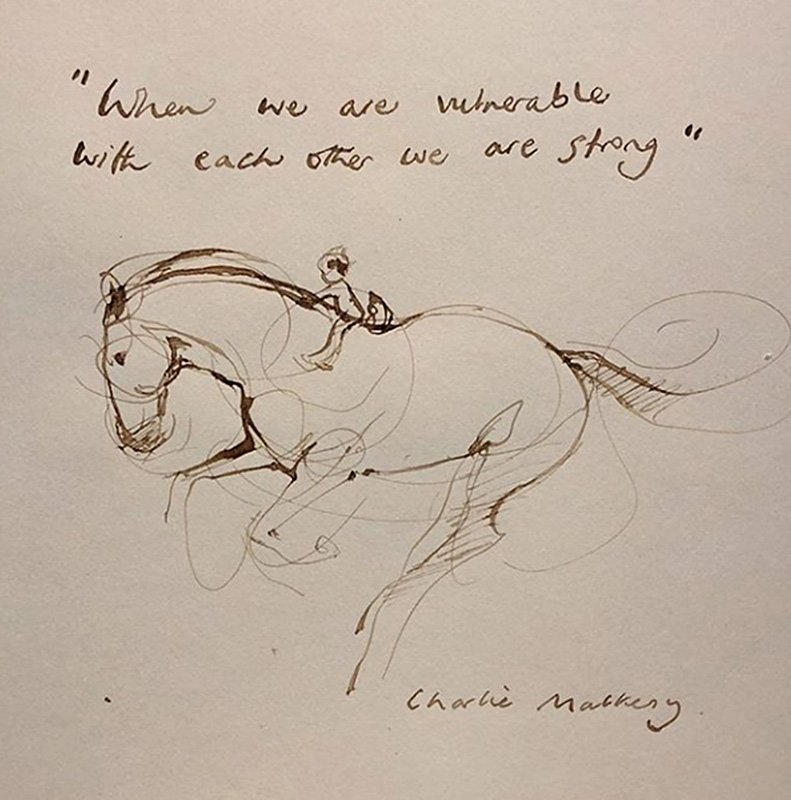 "When we are vulnerable
with each other we are strong"
Charlie Mackesy